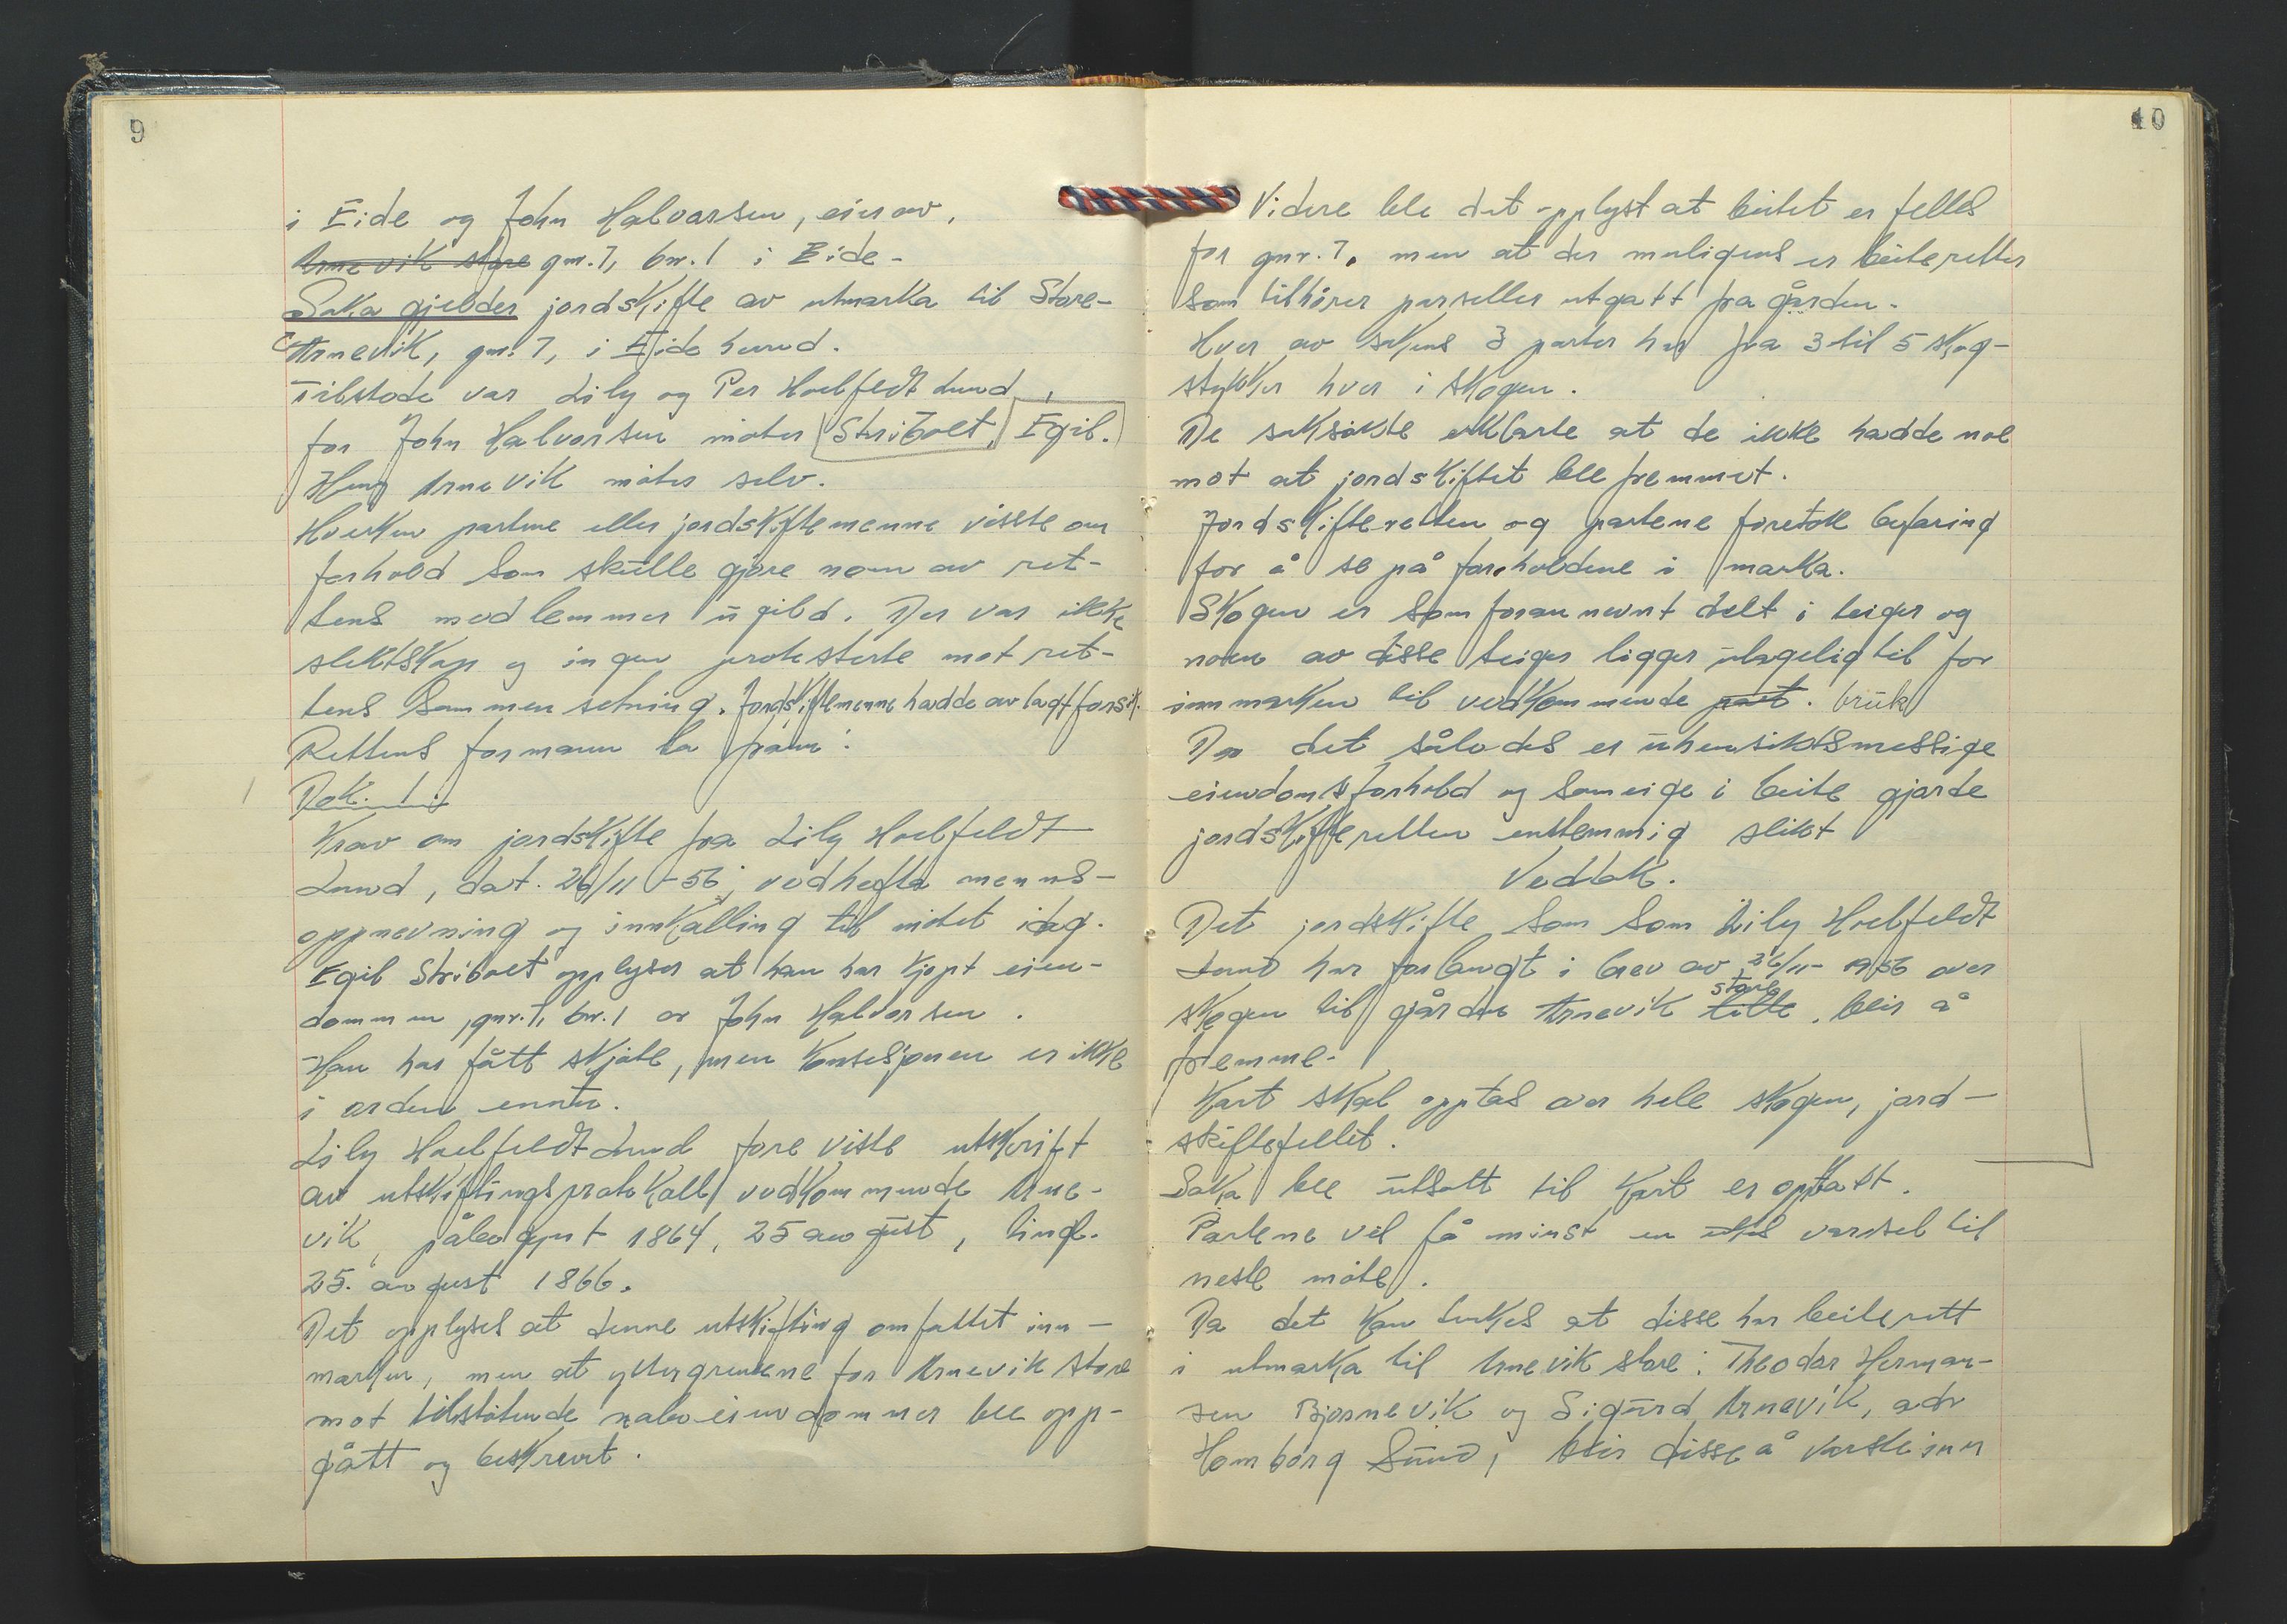 9
i Eide og John Halvorsen, eier av,
Arnevik store gnr. 7, bnr. 1 i Eide -
Saka gjelder jordskifte av utmarka til Store-
Arnevik, gnr. 7, i Eide herred.
Tilstede var Lily og Per Holfeldt Lund,
for John Halvorsen møter Stribolt, Egil.
Arnevik møter selv.
Hverken partene eller jordskiftemennene visste om
forhold som skulle gjøre noen av ret-
tens medlemmer ugild. Der var ikke
slektskap og ingen protesterte mot ret-
tens sammensetning. Jordskiftemennene hadde avlagt forsik.
Rettens formann la fram:
Dok. 1.
Krav om jordskifte fra Lily Holfeldt
Lund, dat. 26/11-56, vedhefta menns-
oppnevning og innkalling til møtet idag.
Egil Stribolt opplyser at han har kjøpt eien-
dommen, gnr. 7, bnr. 1 av John Halvorsen.
Han har fått skjøte, men konsesjonen er ikke
i orden ennu.
Lily Holfeldt Lund foreviste utskrift
av utskiftingsprotokoll vedkommende Arne-
vik, påbegynt 1864, 25 august, tingl.
25. august 1866.
Det opplyses at denne utskifting omfattet inn-
marken, men at yttergrensene for Arnevik store
mot tilstøtende naboeiendommer ble opp-
gått og beskrevet.
10
Videre ble det opplyst at beitet er felles
for gnr. 7. men at der muligens er beiteretter
som tilhører parseller utgått fra gården.
Hver av sakens 3 parter har fra 3 til 5 skog-
stykker hver i skogen.
De saksøkte erklærte at de ikke hadde noe
mot at jordskiftet ble fremmet.
Jordskifteretten og partene foretok befaring
for å se på forholdene i marka.
Skogen er som forannevnt delt i teiger og
noen av disse teiger ligger ulagelig til for
innmarken til vedkommende part. bruk
Da det således er uhensiktsmessige
eiendomsforhold og sameige i beite gjorde
jordskifteretten enstemmig slikt
Vedtak.
Det jordskifte som som Lily Holfeldt
Lund har forlangt i brev av 26/11-1956 over
store
skogen til gården Arnevik litle, blir å
fremme.
Kart skal opptas over hele skogen, jord-
skiftefeltet.
Saka ble utsatt til kart er opptatt.
Partene vil få minst en ukes varsel til
neste møte.
Da det kan tenkes at disse har beiterett
i utmarka til Arnevik store: Theodor Herman-
sen Bjørnevik og Sigurd Arnevik, adr
Homborg Sund, blir disse å varsle inn